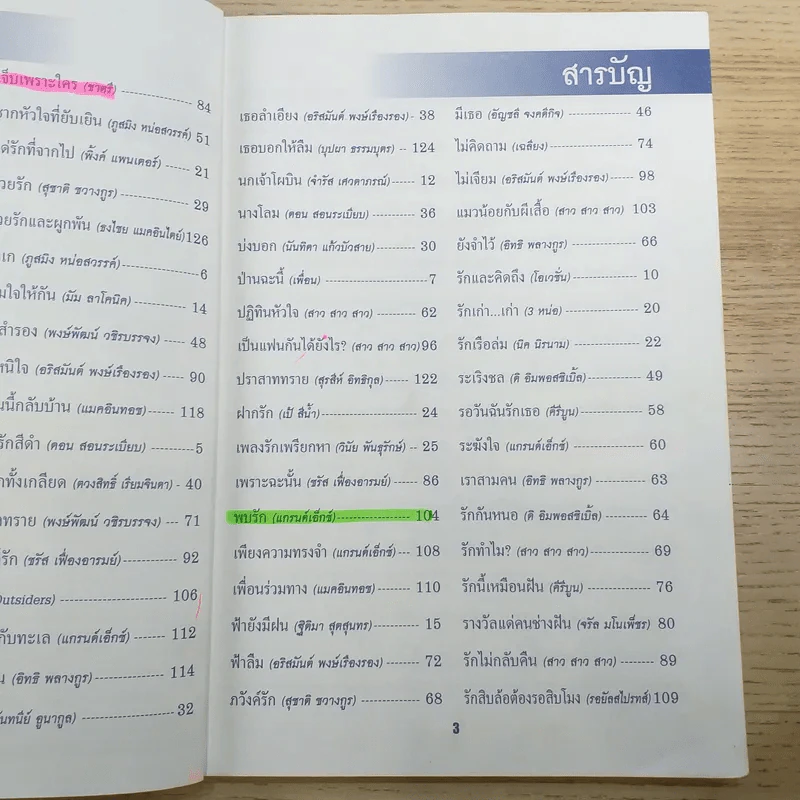 จ็บเพราะใคร (ชาตรี) 84
รากหัวใจที่ยับเยิน (ภูสมิง หน่อสวรรค์) 51
ด่รักที่จากไป (พิ้งค์ แพนเตอร์) 21
วยรัก (สุชาติ ชวางกูร) 29
วยรักและผูกพัน (ธงไชย แมคอินไตย์) 126
เก (ภูสมิง หน่อสวรรค์) 6
มใจให้กัน (มัม ลาโคนิค) 14
สำรอง (พงษ์พัฒน์ วชิรบรรจง) 48
หนีใจ (อริสมันต์ พงษ์เรืองรอง) 90
นนี้กลับบ้าน (แมคอินทอช) 118
รักสีดำ (ตอน สอนระเบียบ) 5
าทั้งเกลียด (ดวงสิทธิ์ เรียมจินดา) 40
ทราย (พงษ์พัฒน์ วชิรบรรจง) 71
รัก (ชรัส เฟื่องอารมย์) 92
Outsiders) 106
กับทะเล (แกรนด์เอ็กซ์) 112
น (อิทธิ พลางกูร) 114
นทนีย์ อูนากูล) 32
สารบัญ
เธอลำเอียง (อริสมันต์ พงษ์เรืองรอง) 38
เธอบอกให้ลืม (บุปผา ธรรมบุตร) 124
นกเจ้าโผบิน (จำรัส เศวตาภรณ์) 12
นางโลม (ตอน สอนระเบียบ) 36
บ่งบอก (นันทิดา แก้วบัวสาย) 30
ป่านฉะนี้ (เพื่อน) 7
ปฏิทินหัวใจ (สาว สาว สาว) 62
เป็นแฟนกันได้ยังไร? (สาว สาว สาว) 96
ปราสาททราย (สุรสีห์ อิทธิกุล) 122
ฝากรัก (เป้ สีน้ำ) 24
เพลงรักเพรียกหา (วินัย พันธุรักษ์) 25
เพราะฉะนั้น (ชรัส เฟื่องอารมย์) 86
พบรัก (แกรนด์เอ็กซ์) 104
เพียงความทรงจำ (แกรนด์เอ็กซ์) 108
เพื่อนร่วมทาง (แมคอินทอช) 110
ฟ้ายังมีฝน (ฐิติมา สุตสุนทร) 15
ฟ้าลืม (อริสมันต์ พงษ์เรืองรอง) 72
ภวังค์รัก (สุชาติ ชวางกูร) 68
มีเธอ (อัญชลี จงคดีกิจ) 46
ไม่คิดถาม (เฉลียง) 74
ไม่เจียม (อริสมันต์ พงษ์เรืองรอง) 98
แมวน้อยกับผีเสื้อ (สาว สาว สาว) 103
ยังจำไว้ (อิทธิ พลางกูร) 66
รักและคิดถึง (โอเวชั่น) 10
รักเก่า...เก่า (3 หน่อ) 20
รักเรือล่ม (นิค นิรนาม) 22
ระเริงชล (ดิ อิมพอสซิเบิ้ล) 49
รอวันฉันรักเธอ (คีรีบูน) 58
ระฆังใจ (แกรนด์เอ็กซ์) 60
เราสามคน (อิทธิ พลางกูร) 63
รักกันหนอ (ดิ อิมพอสซิเบิ้ล) 64
รักทำไม? (สาว สาว สาว) 69
รักนี้เหมือนฝัน (คีรีบูน) 76
รางวัลแด่คนช่างฝัน (จรัล มโนเพ็ชร) 80
รักไม่กลับคืน (สาว สาว สาว) 89
รักสิบล้อต้องรอสิบโมง (รอยัลสไปรทส์) 109
3